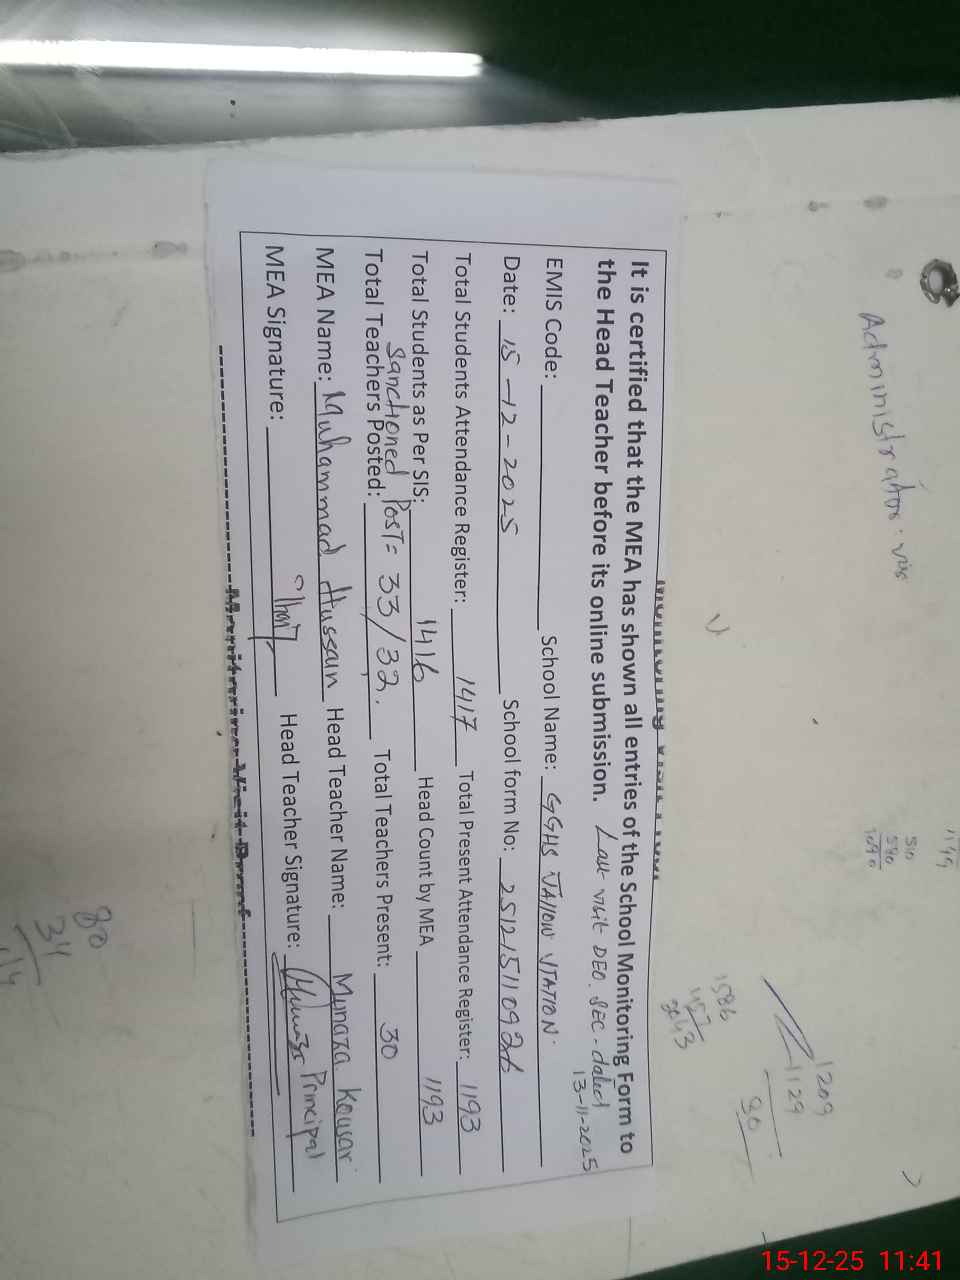 Administrator: vis
1149
510
580
1090
1209
1129
80
1586
1457
3043
It is certified that the MEA has shown all entries of the School Monitoring Form to
the Head Teacher before its online submission. Last visit DEO. SEC - dated
13-11-2025
EMIS Code: School Name: GGHS
Date: 15-12-2025 School form No:
Total Students Attendance Register: 1417 Total Present Attendance Register: 1193
Total Students as Per SIS: 1416 Head Count by MEA 1193
Sanctioned Post = 33/32.
Total Teachers Posted: Total Teachers Present: 30
MEA Name: Muhammad Hussain Head Teacher Name: Munaza Kousar
MEA Signature: Head Teacher Signature: Principal
Monitoring Visit Proof
80
34
15-12-25 11:41